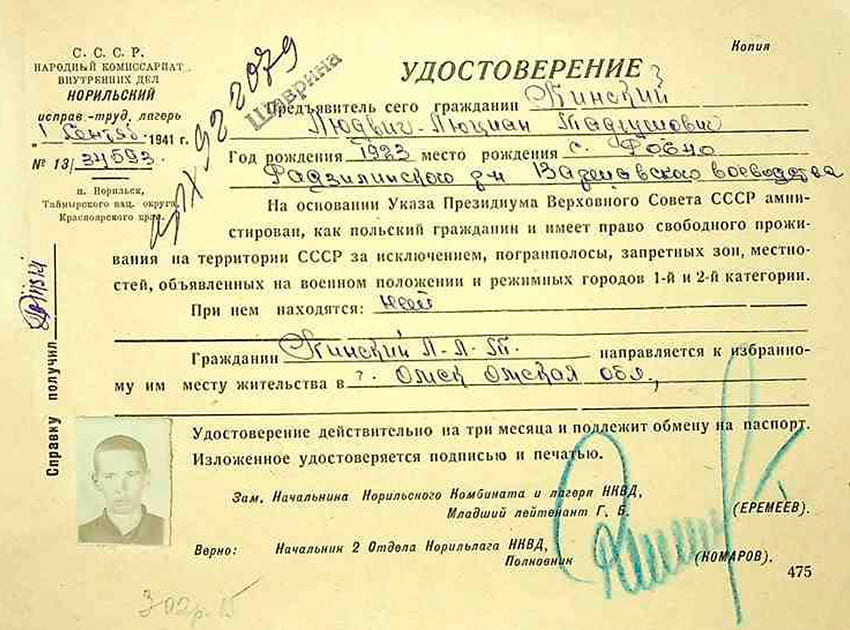 Копия
С. С. С. Р.
НАРОДНЫЙ КОМИССАРИАТ
ВНУТРЕННИХ ДЕЛ
НОРИЛЬСКИЙ
исправ.-труд. лагерь
„1 Сентяб 1941 г.
№ 13/34593
п. Норильск,
Таймырского нац. округа,
Красноярского края.
922079
УДОСТОВЕРЕНИЕ
Предъявитель сего гражданин
Людвиг-Люциан Тадеушович
Год рождения 1923 место рождения с.
На основании Указа Президиума Верховного Совета СССР амни-
стирован, как польский гражданин и имеет право свободного прожи-
вания на территории СССР за исключением, погранполосы, запретных зон, местно-
стей, объявленных на военном положении и режимных городов 1-й и 2-й категории.
При нем находятся:
Гражданин Л-Л-Т. направляется к избранно-
му им месту жительства в г. Омск Омская обл.,
Удостоверение действительно на три месяца и подлежит обмену на паспорт.
Изложенное удостоверяется подписью и печатью.
Справку получил
Зам. Начальника Норильского Комбината и лагеря НКВД,
Младший лейтенант Г. Б. (ЕРЕМЕЕВ).
Верно: Начальник 2 Отдела Норильлага НКВД,
Полковник (КОМАРОВ).
475